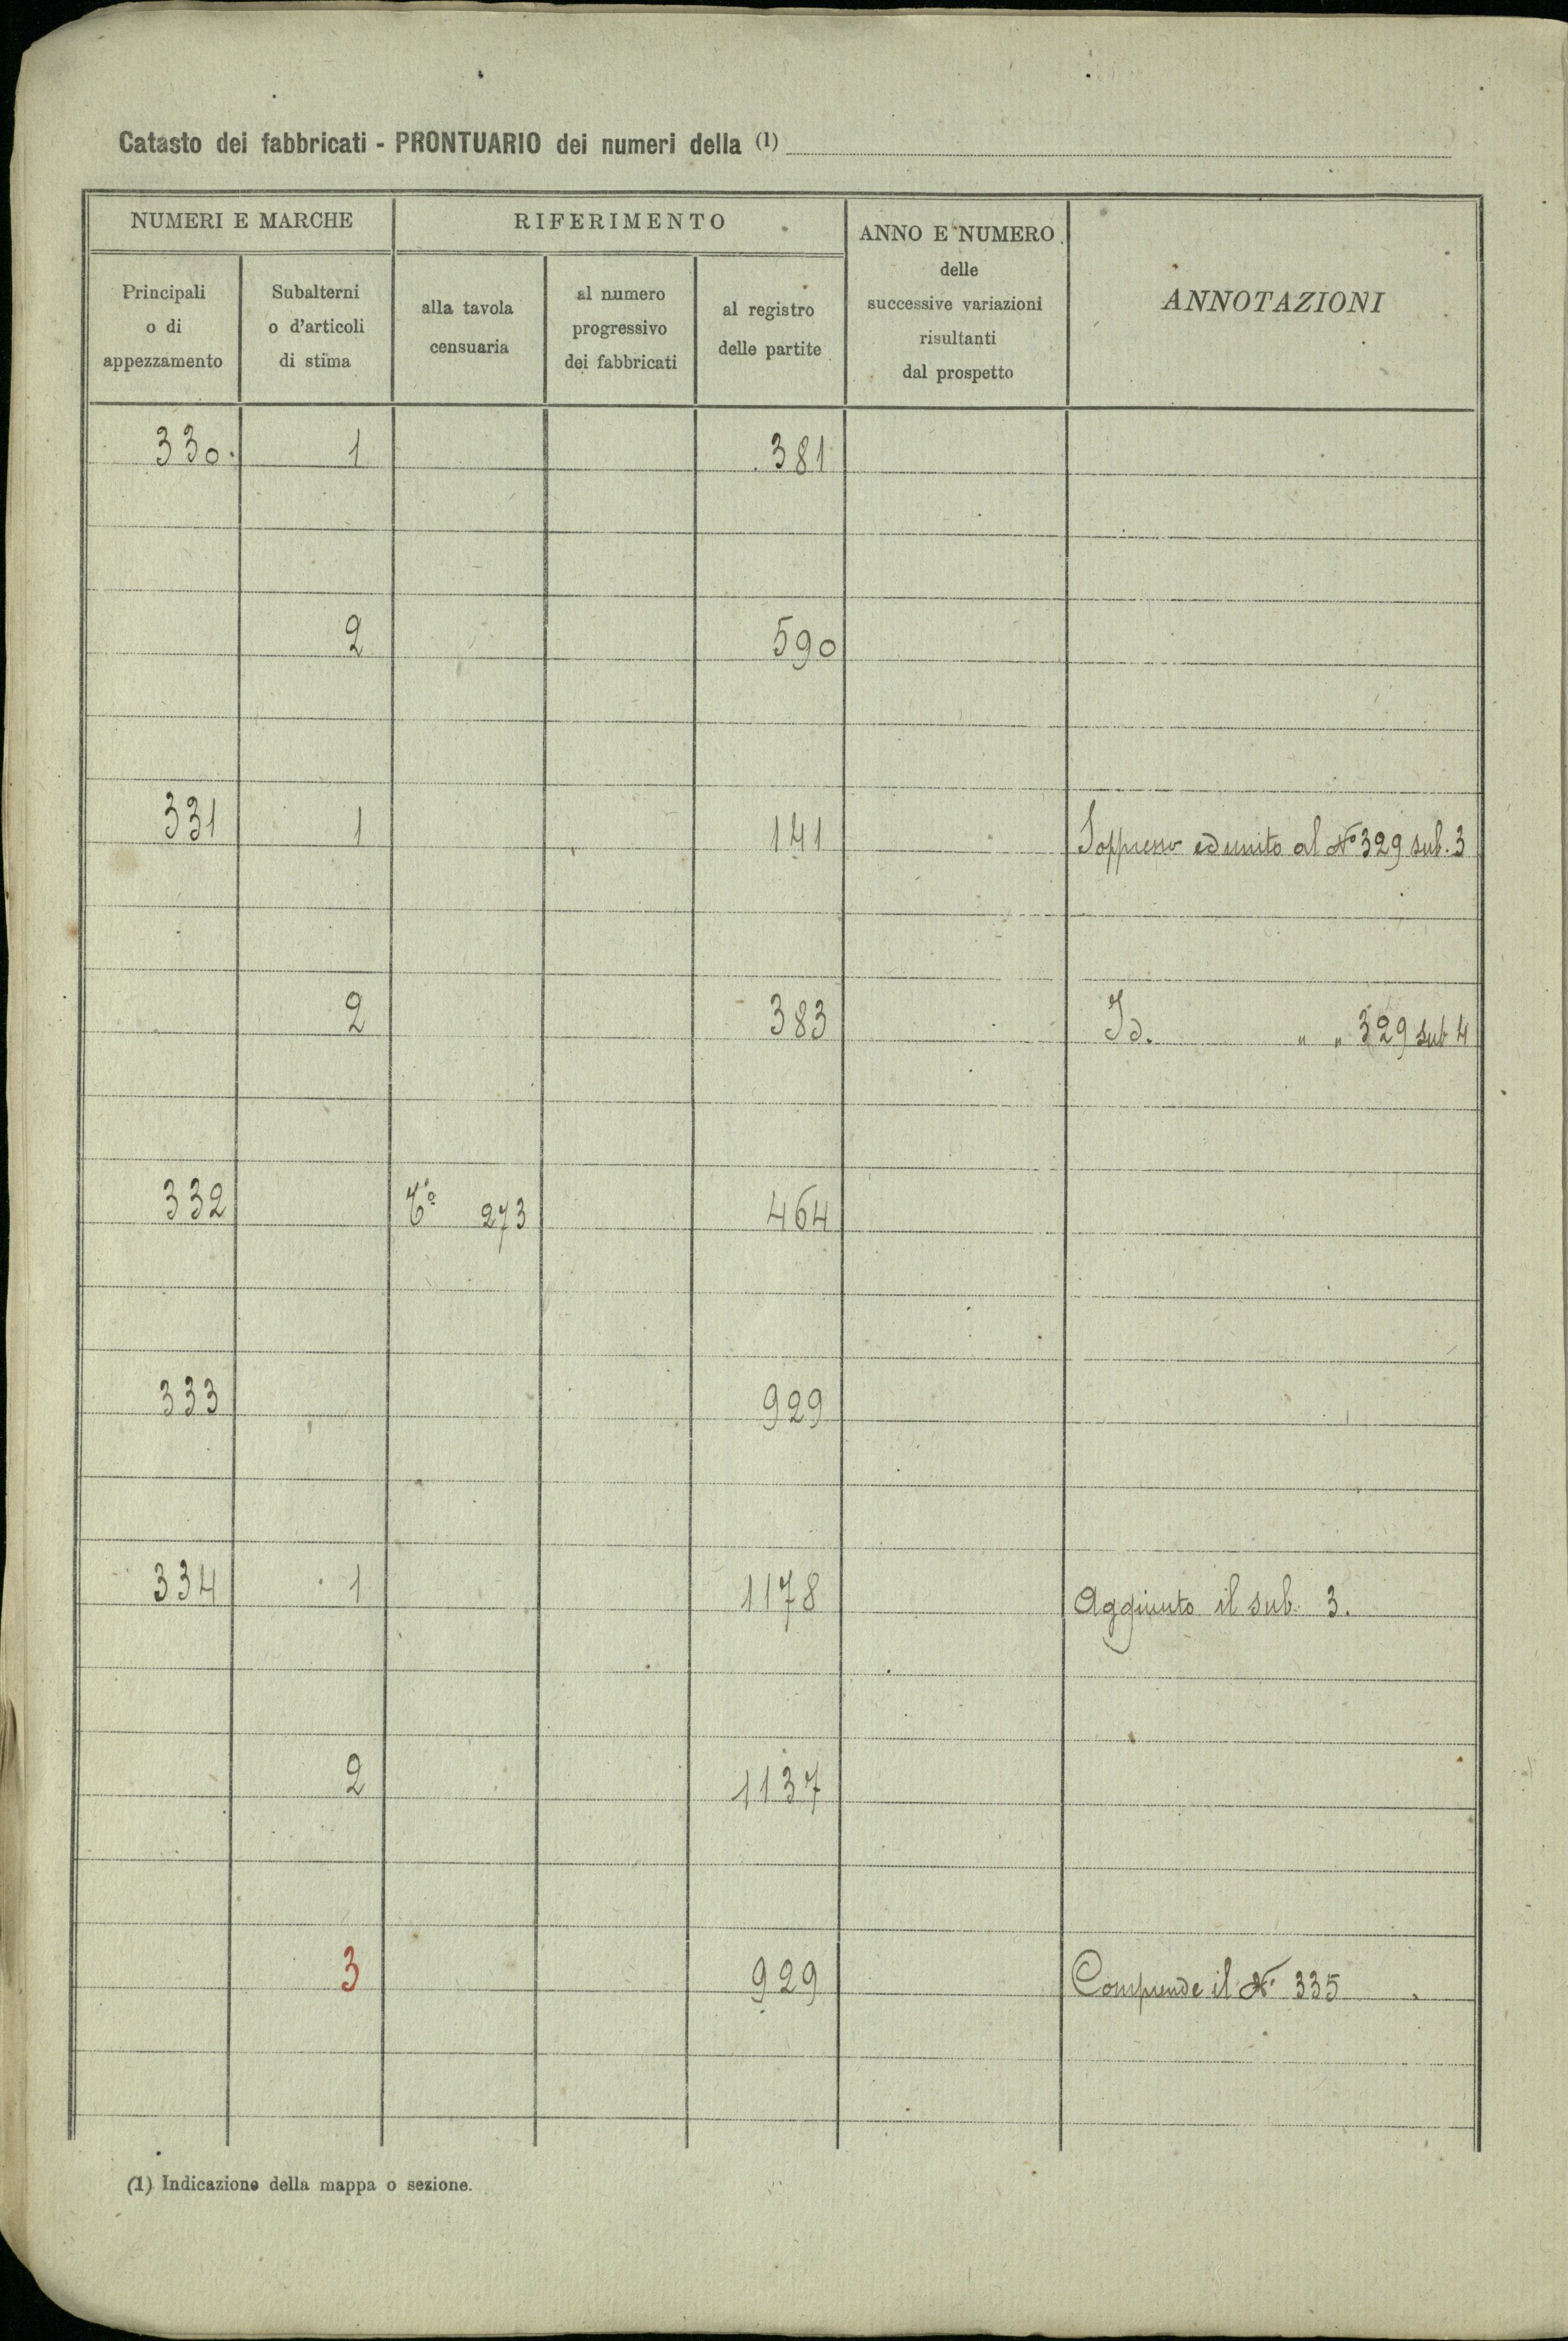 Catasto dei fabbricati - PRONTUARIO dei numeri della (1)
NUMERI E MARCHE
RIFERIMENTO
ANNO E NUMERO
delle
successive variazioni
risultanti
dal prospetto
ANNOTAZIONI
Principali
o di
appezzamento
Subalterni
o d'articoli
di stima
alla tavola
censuaria
al numero
progressivo
dei fabbricati
al registro
delle partite
330. 1 381
2 590
331 1 141 Soppresso ed unito al N° 329 sub. 3
2 383 Id. " " 329 sub 4
332 273 464
333 929
334 1 1178 Aggiunto il sub. 3.
2 1137
3 929 Comprende il N° 335
(1) Indicazione della mappa o sezione.